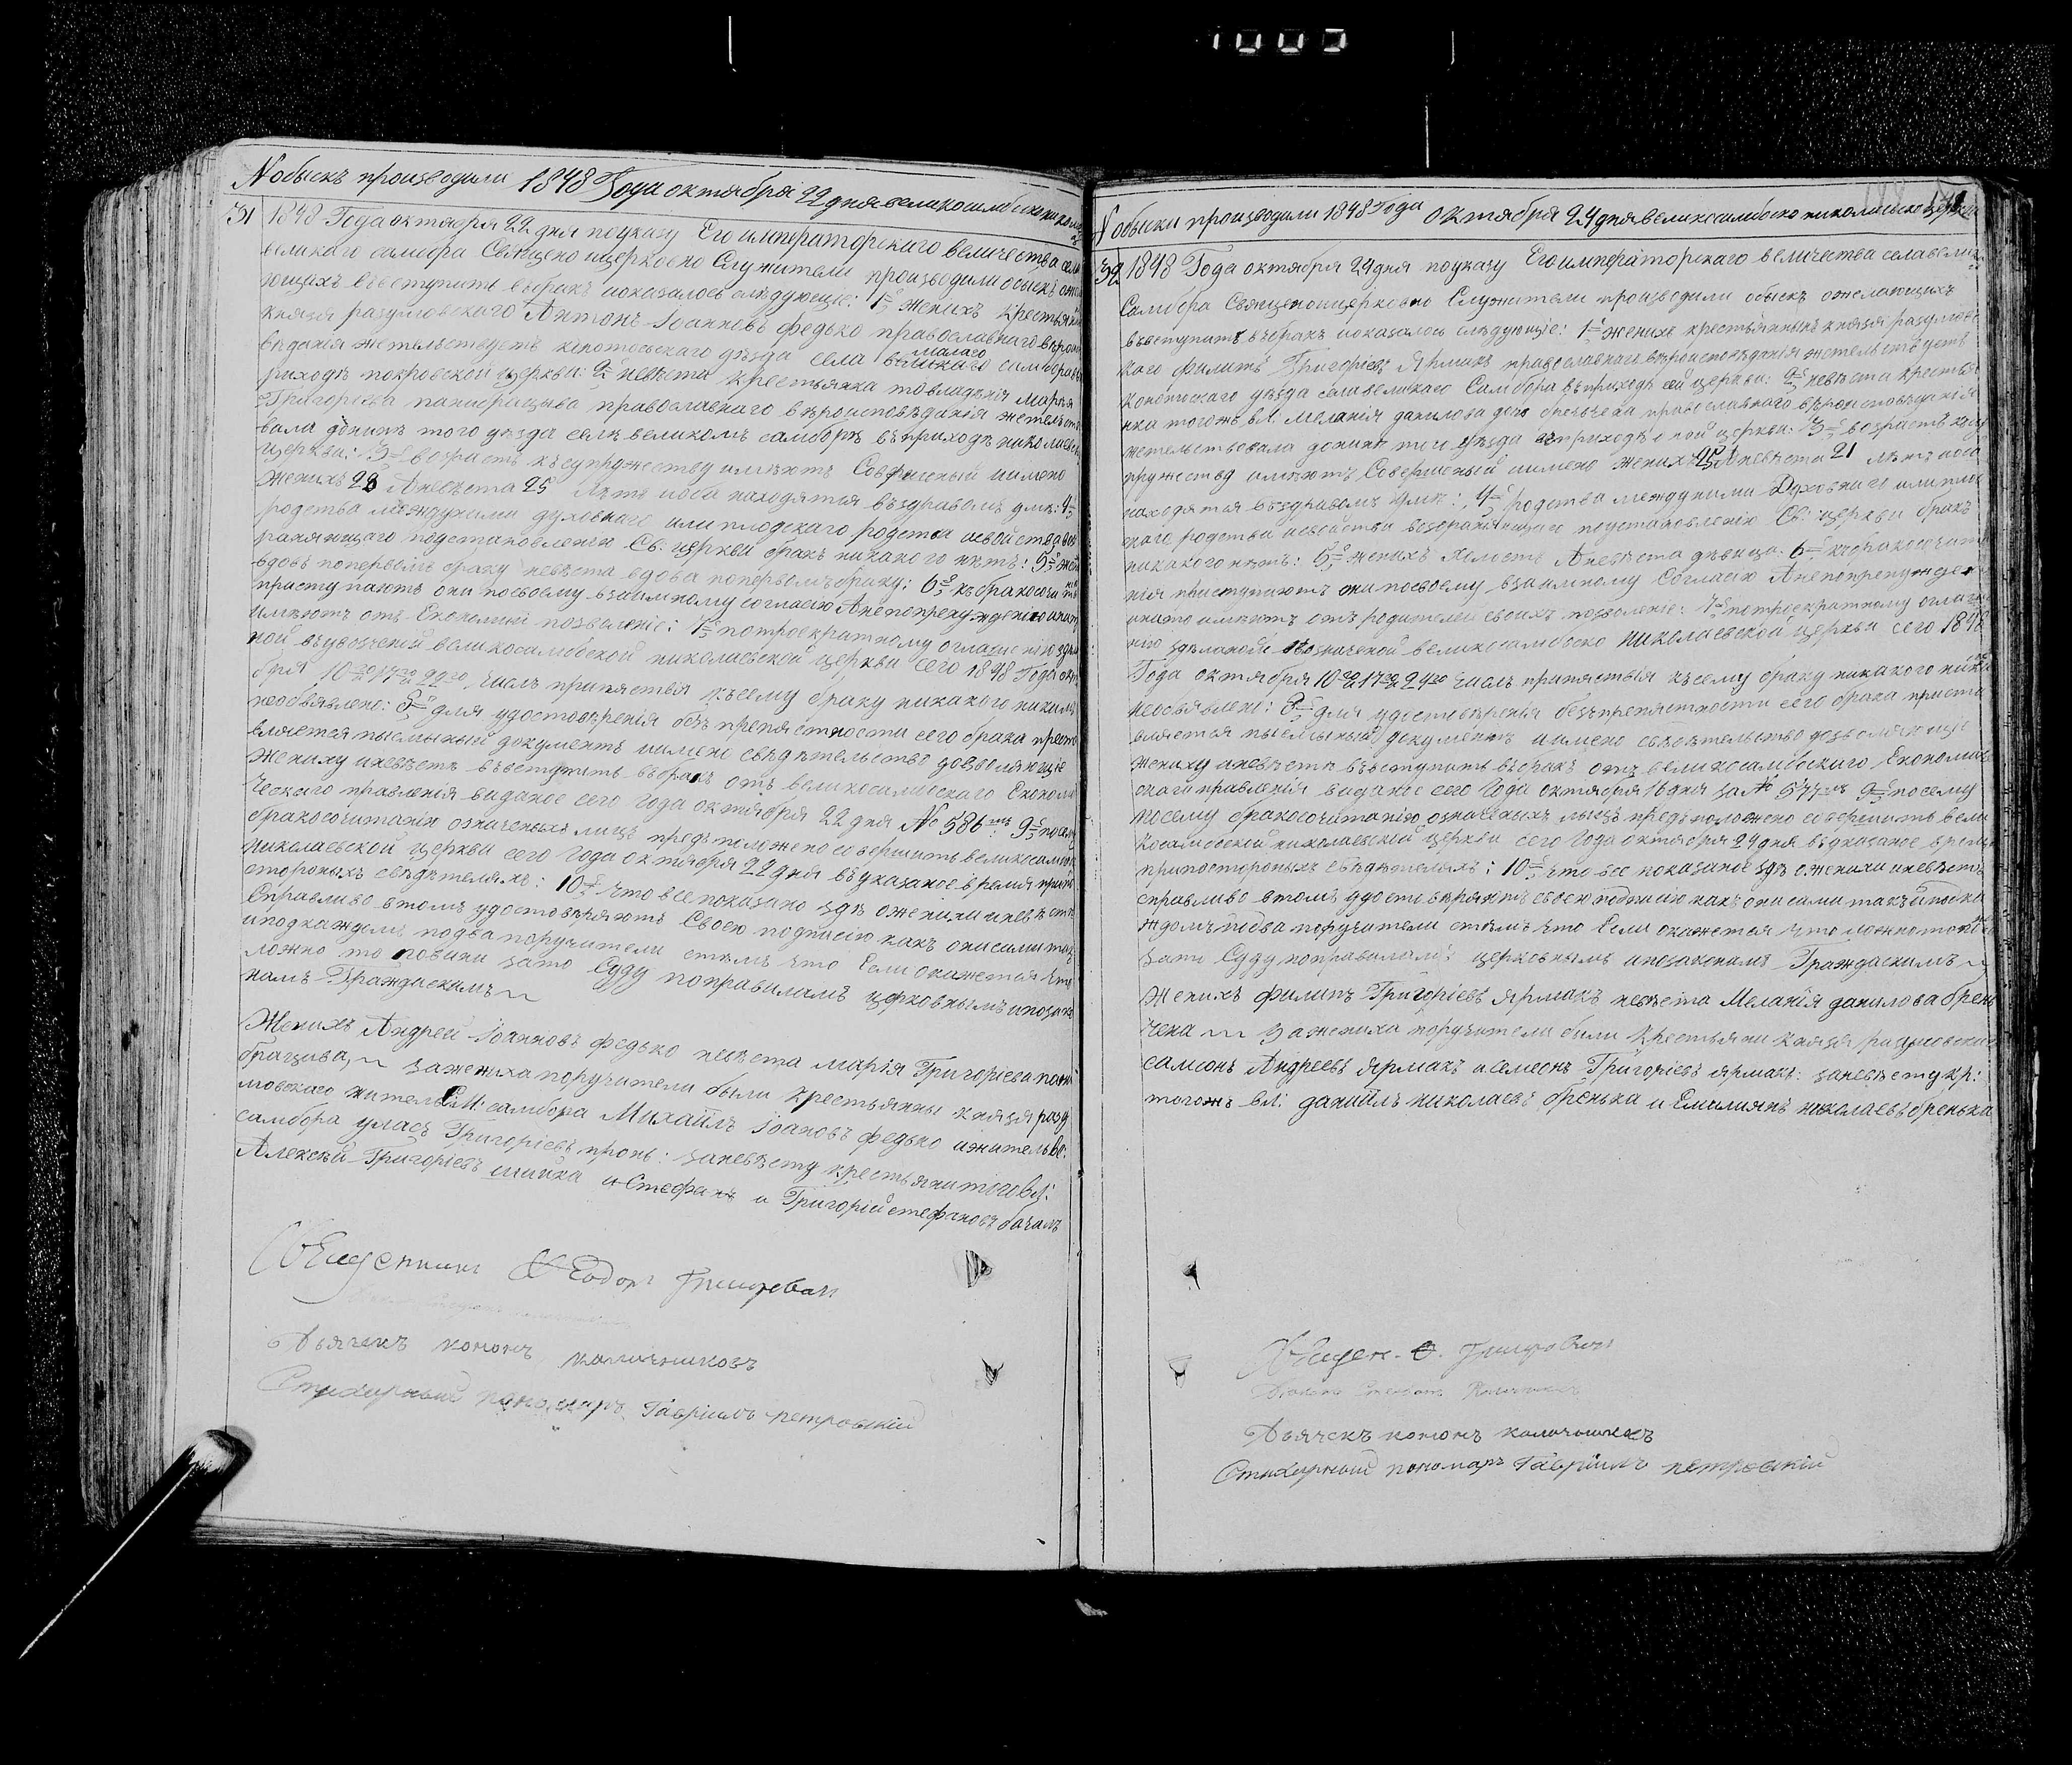 1003
№ обыскъ производили 1848 Года октября 22 дня великосамбско никола
31 1848 Года октября 22 дня поуказу Его императорскаго величества сел
великаго самбора Священо ицерковно Служители производили обыскъ ожел
ющихъ въвступить вбракъ иоказалось слѣдующіе: 1е женихъ крестьяни
князя разумовскаго Антонъ Іоанновъ федько православнаго вѣроис
вѣданія жетельствуетъ конотопскаго уѣзда села великаго малаго самбора въп
риходѣ покровской церкви: 2е невѣста крестьянка товладѣнія Марія
Григорієва православнаго вѣроисповѣданія жетельство
вала донинѣ того уѣзда селѣ великомъ самборѣ въприходѣ николаев
церкви: 3е возрастъ къ супружеству имѣютъ Совершенный имено
женихъ 28 Аневѣста 25 лѣтъ иоба находятся въздравомъ умѣ: 4е
родства междуними духовнаго или плодскаго родства исвойства воз
раняющаго подстановленію Св: церкви бракъ никакого нѣтъ: 5е жен
вдовъ попервомъ браку невѣста вдова попервомъ браку: 6е къ бракосочита
приступаютъ они посвоему взаимному согласію Анепопренужденію инато
имѣютъ отъ Економіи позволеніе: 7е потроекратному оглашенію здѣла
ной въозначеной великосамбской николаевской церкви сего 1848 Года окт
бря 10го 17го 22го числъ припятствія къ сему браку никакого никимъ
необявлено: 8е для удостовѣренія безъпрепятности сего брака предста
вляется письмяный документъ иимено свѣдѣтельство дозволяющіе
жениху иневѣстѣ въвступить въбракъ отъ великосамбскаго Економи
ческаго правленія виданое сего Года октября 22 дня № 586мъ 9е посему
бракосочитанію означеныхъ лицъ предположено совершить великосамбск
николаевской церкви сего Года октября 22 дня въуказаное время припо
стороныхъ свѣдѣтеляхъ: 10е что все показано здѣ ожених иневѣстѣ
Справливо втомъ удостовѣряютъ Своею подписію какъ онисами такъ
иподкаждомъ подва поручители стѣмъ что Если окажется что
ложно то повини зато Суду поправиламъ церковнымъ ипозако
намъ Граждаскимъ
Женихъ Андрей Іоанновъ федько невѣста марія Григорієва
зажениха поручители были крестьянны князя разу
мовскаго жители М: самбора Михаилъ Іоановъ федько ижитель ве:
самбора уласъ Григорієвъ пронь: заневѣсту крестьяни того вл:
Алексѣй Григорієвъ шийка и Стефанъ и Григорій стефановъ
Священникъ Ѳеодоръ
Дьячекъ кононъ
Стихирный пономаръ Гавріилъ петровскій
№ обыски производили 1848 Года октября 24 дня великосамбско николаевско церкви
32 1848 Года октября 24 дня поуказу Его императорскаго величества села вели
Самбора Священоицерковно Служители производили обыскъ ожелающихъ
въвступить въбракъ иоказалось слѣдующіе: 1е женихъ крестьянинъ князя разумовс
каго филипъ Григорієвъ Ярмакъ православнаго вѣроисповѣданія жетельствуетъ
конотпскаго уѣзда села великаго Самбора въприходѣ сей церкви: 2е невѣста крестья
нка тогожъ вл. Меланія данилова дочь православнаго вѣроисповѣданія
жетельствовала донинѣ того уѣзда церкви: 3е возрастъ ксу
пружеству имѣютъ Совершеный иимено женихъ Аневѣста 21 лѣтъ иоба
находятся въздравомъ умѣ: 4е родства междуними Духовнаго или пло
скаго родства исвойства возбраняющаго подстановленію Св: церкви бракъ
никакого нѣтъ: 5е женихъ холостъ Аневѣста дѣвица: 6е къ бракосочета
нія приступаютъ они посвоему взаимному Согласію Анепопренужден
инато имѣютъ отъ родителей своихъ позволеніе: 7е потроекратному оглаше
нію здѣланой означеной великосамбско николаевской церкви сего 1848
Года октября 10го 17го 24го числъ припятствія къ сему браку никакого никимъ
необявлено: 8е для удостовѣренія безъпрепятности сего брака предста
вляется письмяный документъ иимено свѣдѣтельство дозволяющіе
жениху иневѣстѣ въвступить въбракъ отъ великосамбскаго Економиче
скаго правленія виданое сего Года октября 16 дня за № 577мъ 9е посему
посему бракосочитанію означеныхъ лицъ предположено совершить вели
косамбской николаевской церкви сего Года октября 24 дня въуказаное время
припостороныхъ свѣдѣтеляхъ: 10е что все показаное здѣ ожених иневѣстѣ
справливо втомъ удостовѣряютъ своею подписію какъ они сами такъ иподка
ждомъ подва поручители стѣмъ что Если окажется что ложно то пови
зато Суду поправиламъ церковнымъ ипозаконамъ Граждаскимъ
Женихъ филипъ Григорієвъ Ярмакъ невѣста Меланія данилова брень
чена зажениха поручители были крестьяни князя разумовскаго
самсонъ Андреевъ Ярмакъ исемеонъ Григорієвъ Ярмакъ: заневѣсту кр:
тогожъ вл: даниилъ николаевъ бренька и Емилиянъ николаевъ бренька
Священ. Ѳ.
Дьячекъ кононъ
Стихирный пономаръ Гавріилъ петровскій